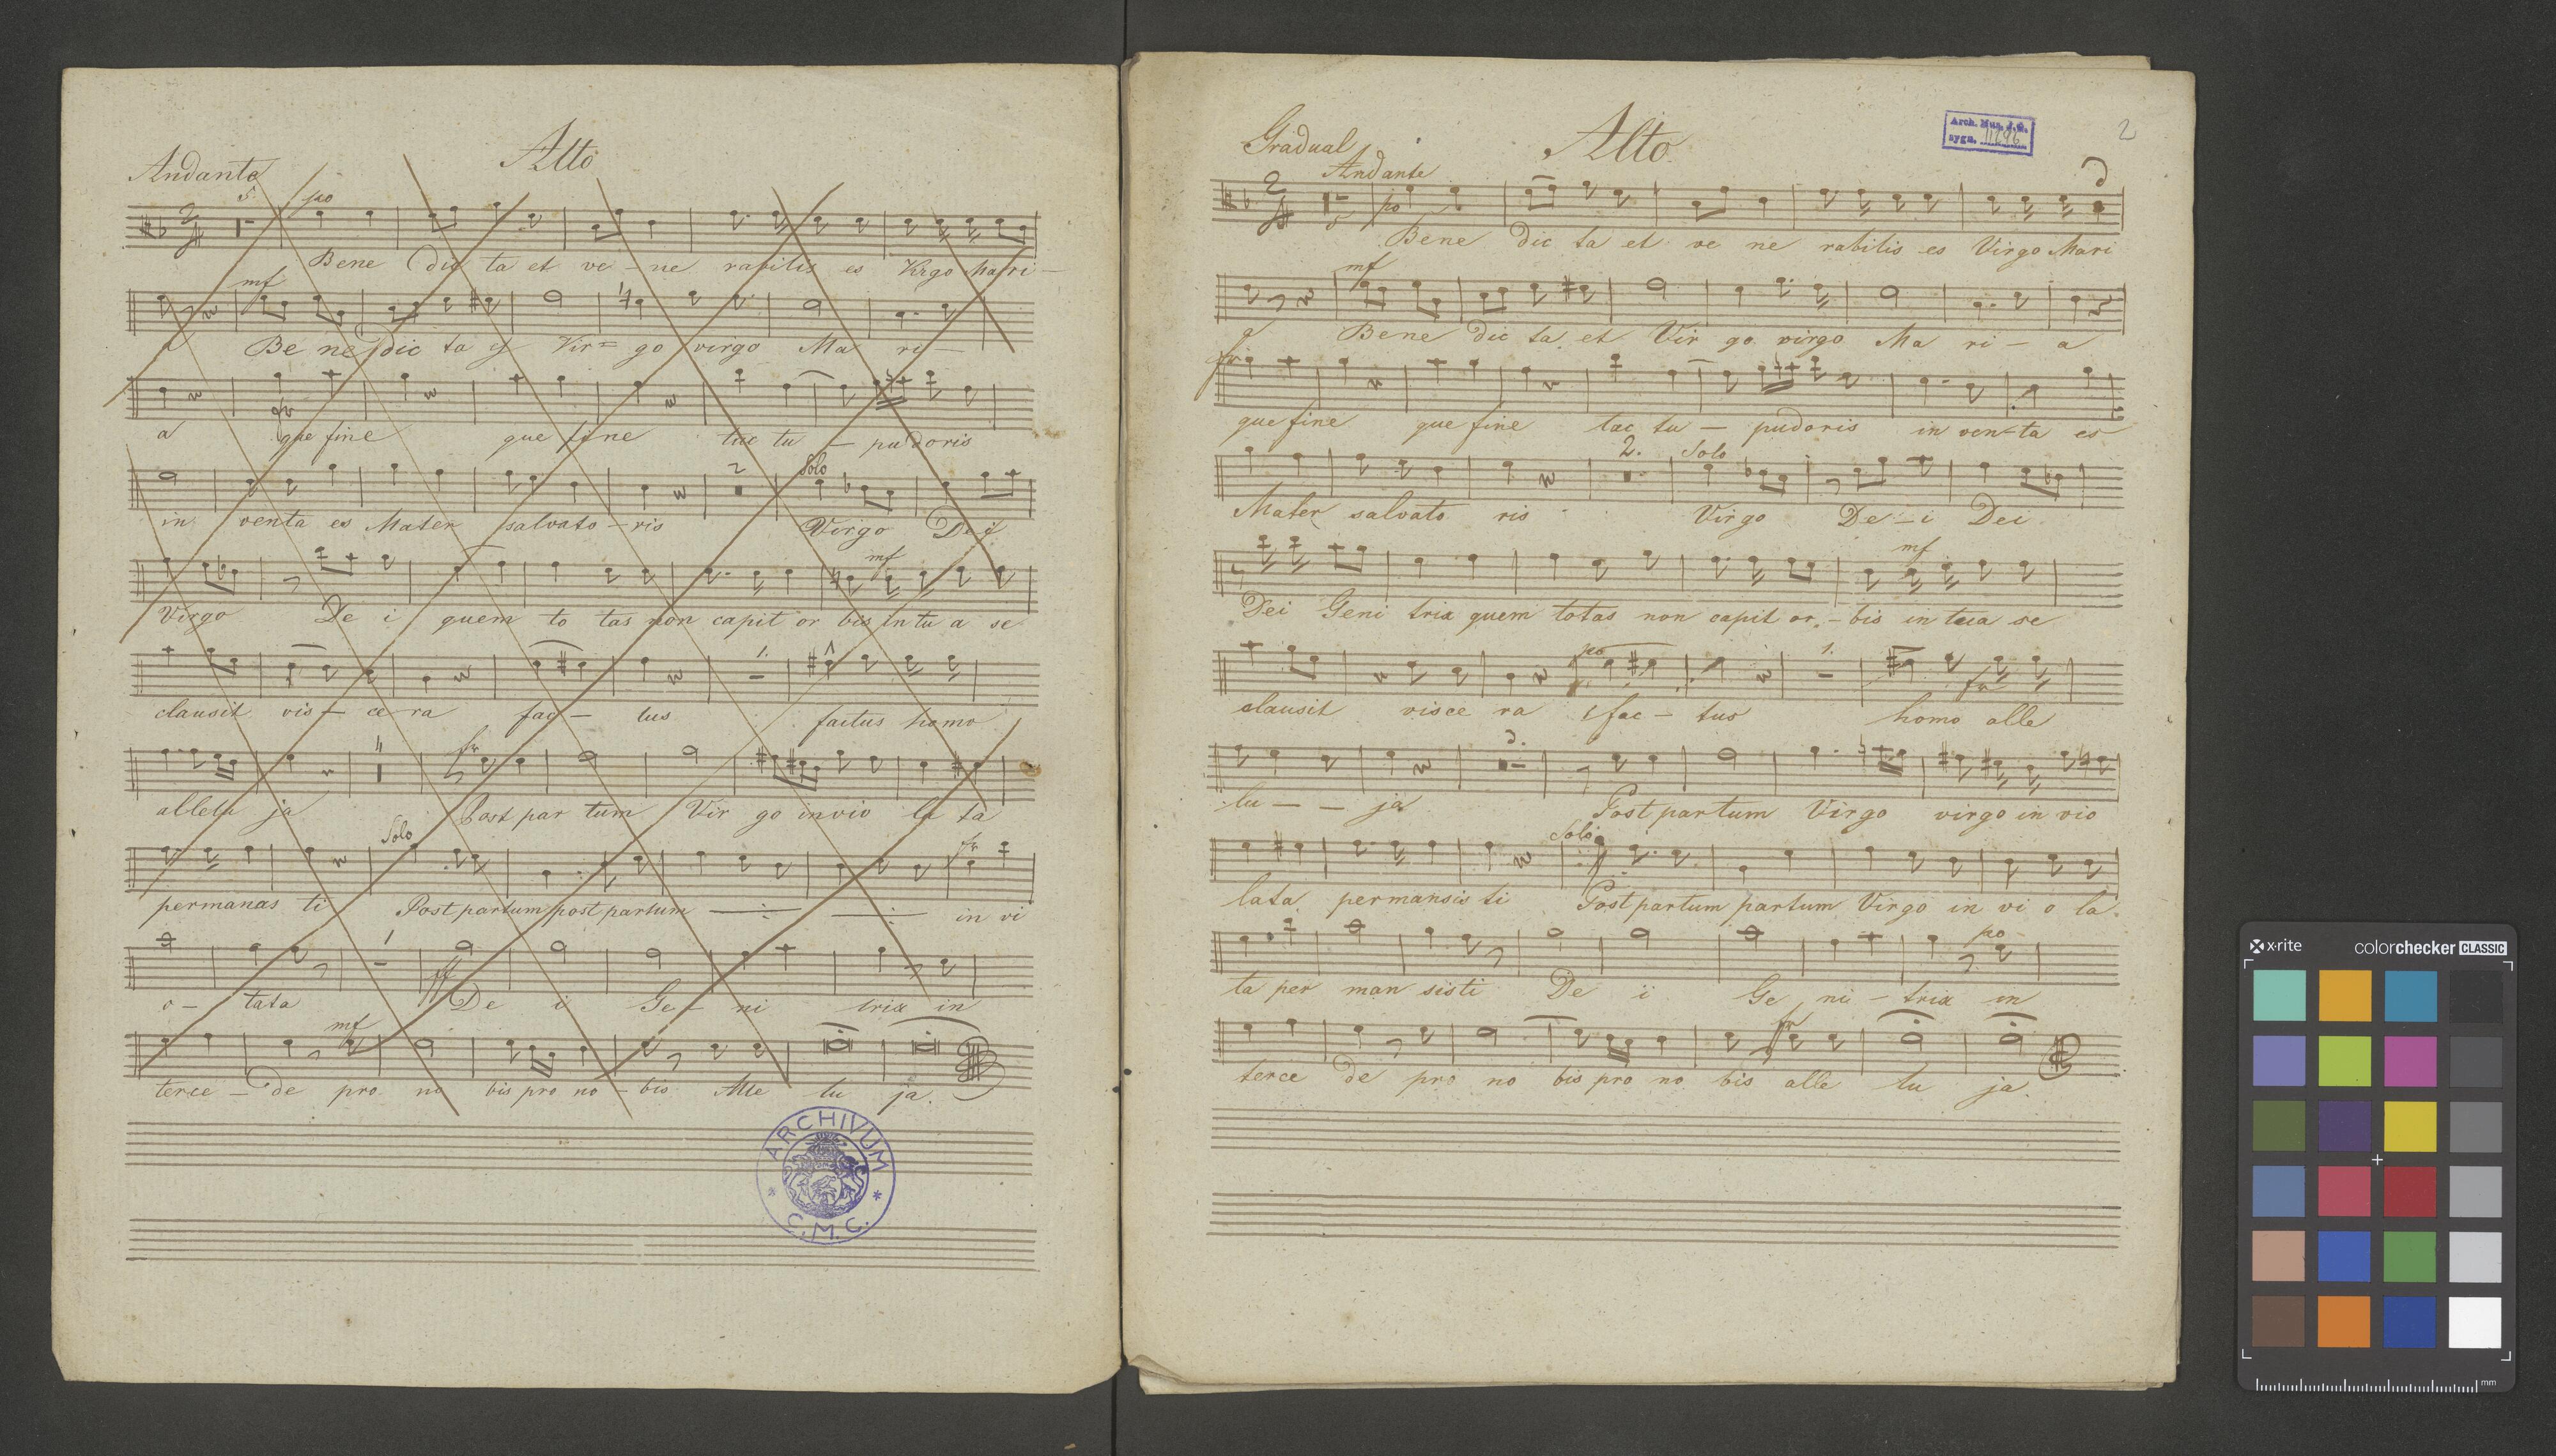 Alto
Andante
5. po
Bene dic ta et ve - ne rabilis es Virgo Mari -
mf
a Be ne dic ta et Vir= go virgo Ma ri -
fr
a que fine que fine tac tu - pudoris
2 Solo
in venta es Mater salvato - ris Virgo Dei
mf
Virgo De i quem to tas non capit or bis in tu a se
1.
clausit vis - ce ra fac - tus factus homo
4 fr
allelu ja Post par tum Vir go invio la ta
Solo fr
permanas ti Post partum post partum in vi
1
ff
o - tata De i Ge - ni trix in
mf
terce - de pro no bis pro no - bis Alle lu ja.
ARCHIVUM
C.M.C.
Gradual Alto
Arch. Mus. J.G.
sygn.
2
Andante
2 5 po
Bene dic ta et ve ne rabilis es Virgo Mari
mf
a Bene dic ta et Vir go virgo Ma ri - a
fr
que fine que fine tac tu - pudoris in ven-ta es
2. Solo
Mater salvato ris Virgo De - i Dei
mf
Dei Geni trix quem totas non capit or - bis in tua se
po 1.
clausit visce ra fac - tus homo alle
fr
3.
lu - - ja Post partum Virgo virgo in vio
Solo
lata permansis ti Post partum partum Virgo in vi o la
po
ta per man sisti De ii Ge ni - trix in
fr
terce de pro no bis pro no bis alle lu ja.
x-rite colorchecker CLASSIC
mm